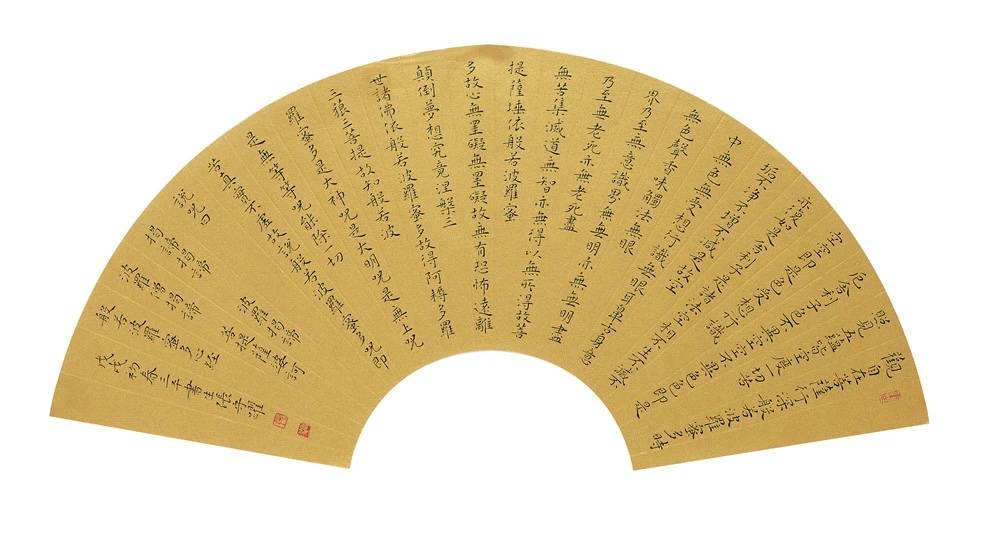 觀自在菩薩行深般若波羅蜜多時
照見五蘊皆空度一切苦
厄舍利子色不異空空不異色色即是
空空即是色受想行識
亦復如是舍利子是諸法空相不生不滅
垢不淨不增不減是故空
中無色無受想行識無眼耳鼻舌身意
無色聲香味觸法無眼
界乃至無意識界無無明亦無無明盡
乃至無老死亦無老死盡
無苦集滅道無智亦無得以無所得故菩
提薩埵依般若波羅蜜
多故心無罣礙無罣礙故無有恐怖遠離
顛倒夢想究竟涅槃三
世諸佛依般若波羅蜜多故得阿耨多羅
三藐三菩提故知般若波
羅蜜多是大神呪是大明呪是無上呪
是無等等呪能除一切
苦真實不虛故說般若波羅蜜多呪即
說呪曰
揭諦揭諦 波羅揭諦
波羅僧揭諦 菩提薩婆訶
般若波羅蜜多心經
戊戌初春三千書生張守